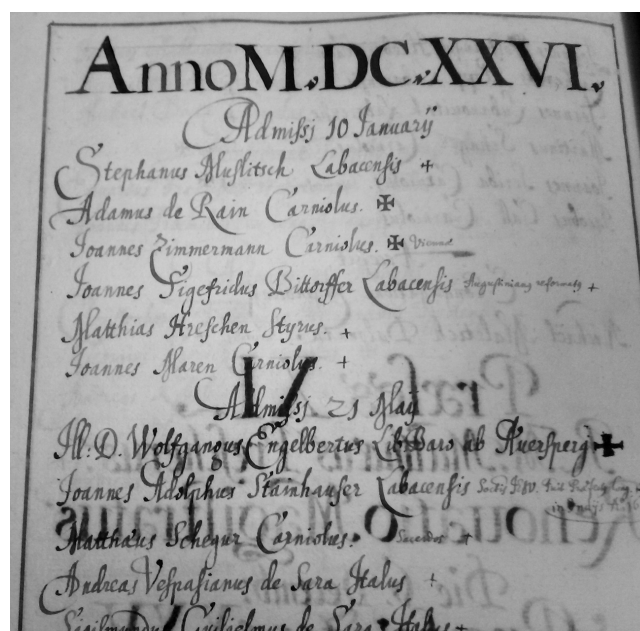 Anno M.DC.XXVI.
Admissj 10 Ianuarij
Stephanus Labacensis +
Adamus de Rain Carniolus. ✠
Ioannes Zimmermann Carniolus. ✠
Ioannes Sigefridus Bittorffer Labacensis Augustinianus reformatus +
Matthias Hreschen Styrus. +
Ioannes Maren Carniolus. +
Admissj 21 Maij
Ill: D. Wolfgangus Engelbertus Lib: Baro ab Auersperg ✠
Ioannes Adolphus Stainhauser Labacensis
Matthæus Schegur Carniolus. Sacerdos +
Andreas Vespasianus de Sara Italus +
Sigismundus Guilielmus de Sara Italus +